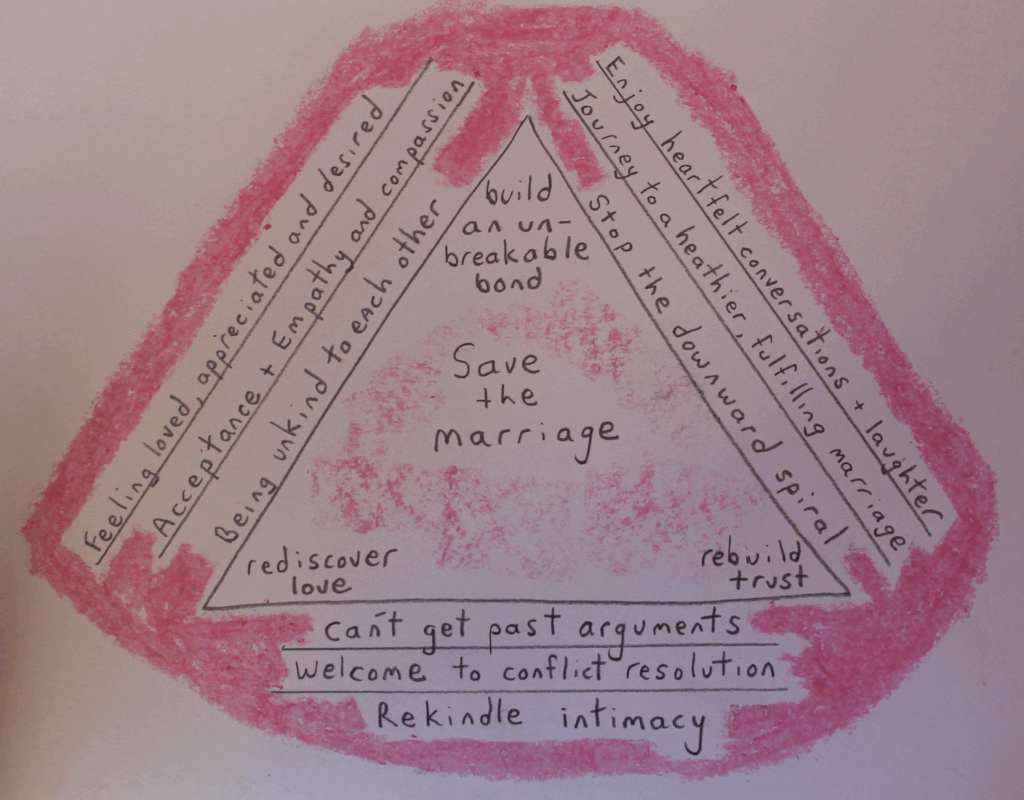 build
an un-
breakable
bond
Save
the
marriage
rediscover
love
rebuild
trust
Feeling loved, appreciated and desired
Acceptance + Empathy and compassion
Being unkind to each other
Enjoy heartfelt conversations + laughter
Journey to a heathier, fulfilling marriage
Stop the downward spiral
can't get past arguments
Welcome to conflict resolution
Rekindle intimacy